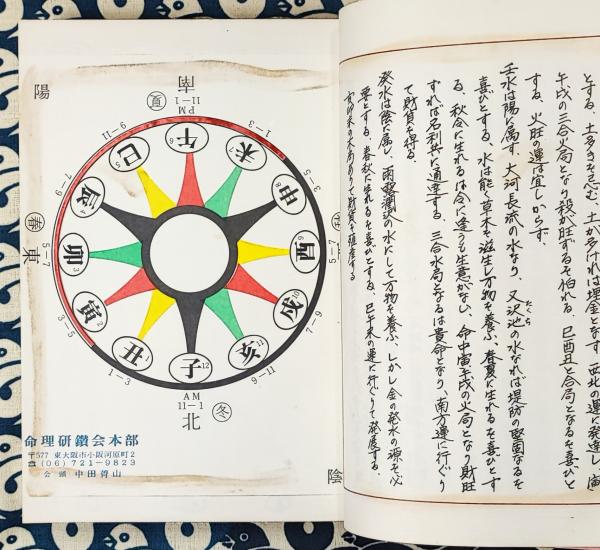 とする、土多きを忌む、土が多ければ埋金となす、西北の運に発達し、寅
午戌の三合火局となり殺が旺ずるを怕れる、巳酉丑と合局となるを喜びと
する、火旺の運は宜しからず、
壬水は陽に属す、大河長流の水なり、又沢池の水なれば堤防の堅固なるを
たくち
喜びとする、水は能く草木を滋生し万物を養ふ、春夏に生れるを喜びとす
る、秋令に生れるは令に逢うも生意がない、命中寅午戌の火局となり財旺
ずれば名利共に通達する、三合水局となるは貴命となり、南方運に行ぐり
て財貨を得る、
癸水は陰に属し、雨露潤沢の水にして万物を養ふ、しかし金の発水の源を必
要とする、春秋に生れるを喜びとする、巳午未の運に行ぐりて発展する、
陽
南
PM
11−1
夏
午
6
1−3
未
7
3−5
申
8
5−7
酉
7−9
戌
10
9−11
亥
11
冬
北
AM
11−1
子
12
1−3
丑
1
3−5
寅
2
東
春
5−7
卯
3
7−9
辰
4
9−11
巳
5
陰
命理研鑽会本部
〒577 東大阪市小阪河原町2
☎(06)721−9823
会頭 中田
山